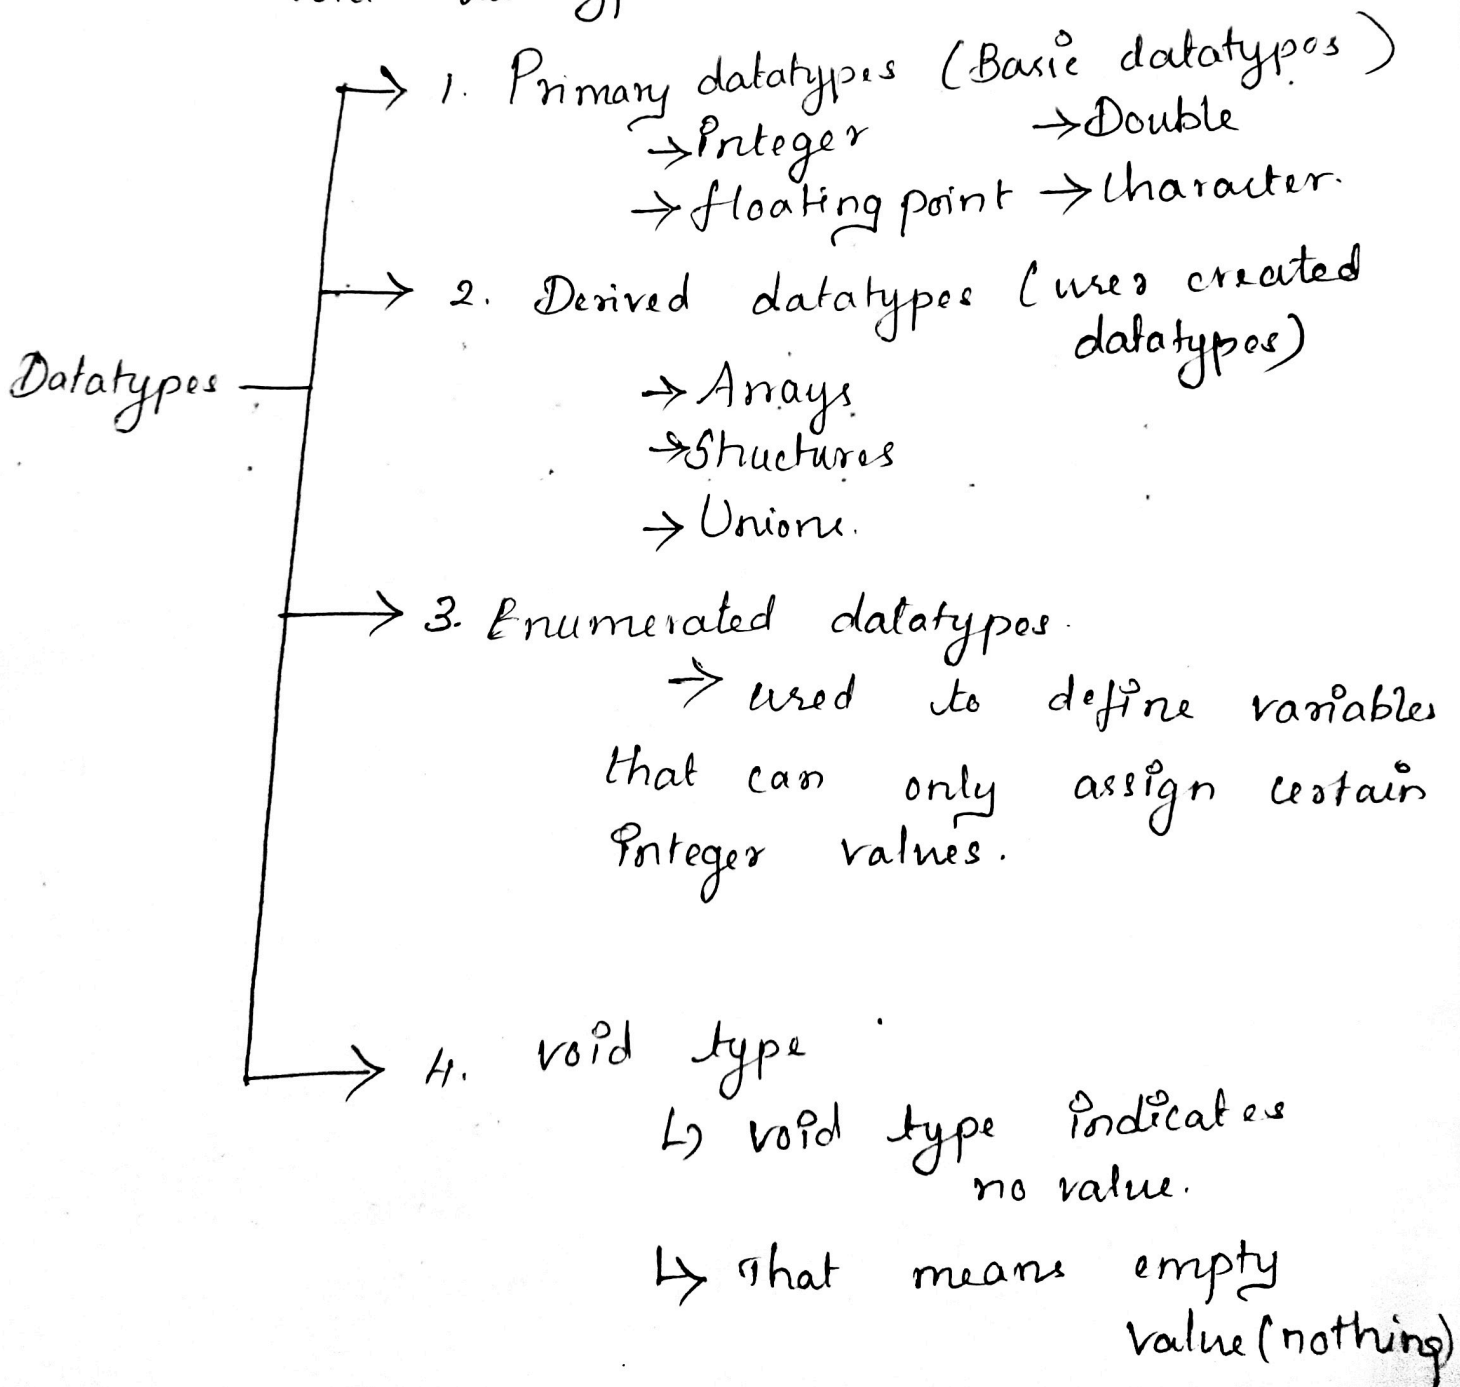 1. Primary datatypes (Basic datatypes)
→ Integer → Double
→ floating point → Character.
2. Derived datatypes (user created
datatypes)
Datatypes
→ Arrays
→ Structures
→ Unions.
3. Enumerated datatypes.
→ used to define variables
that can only assign certain
integer values.
4. void type
↳ void type indicates
no value.
↳ That means empty
value (nothing)